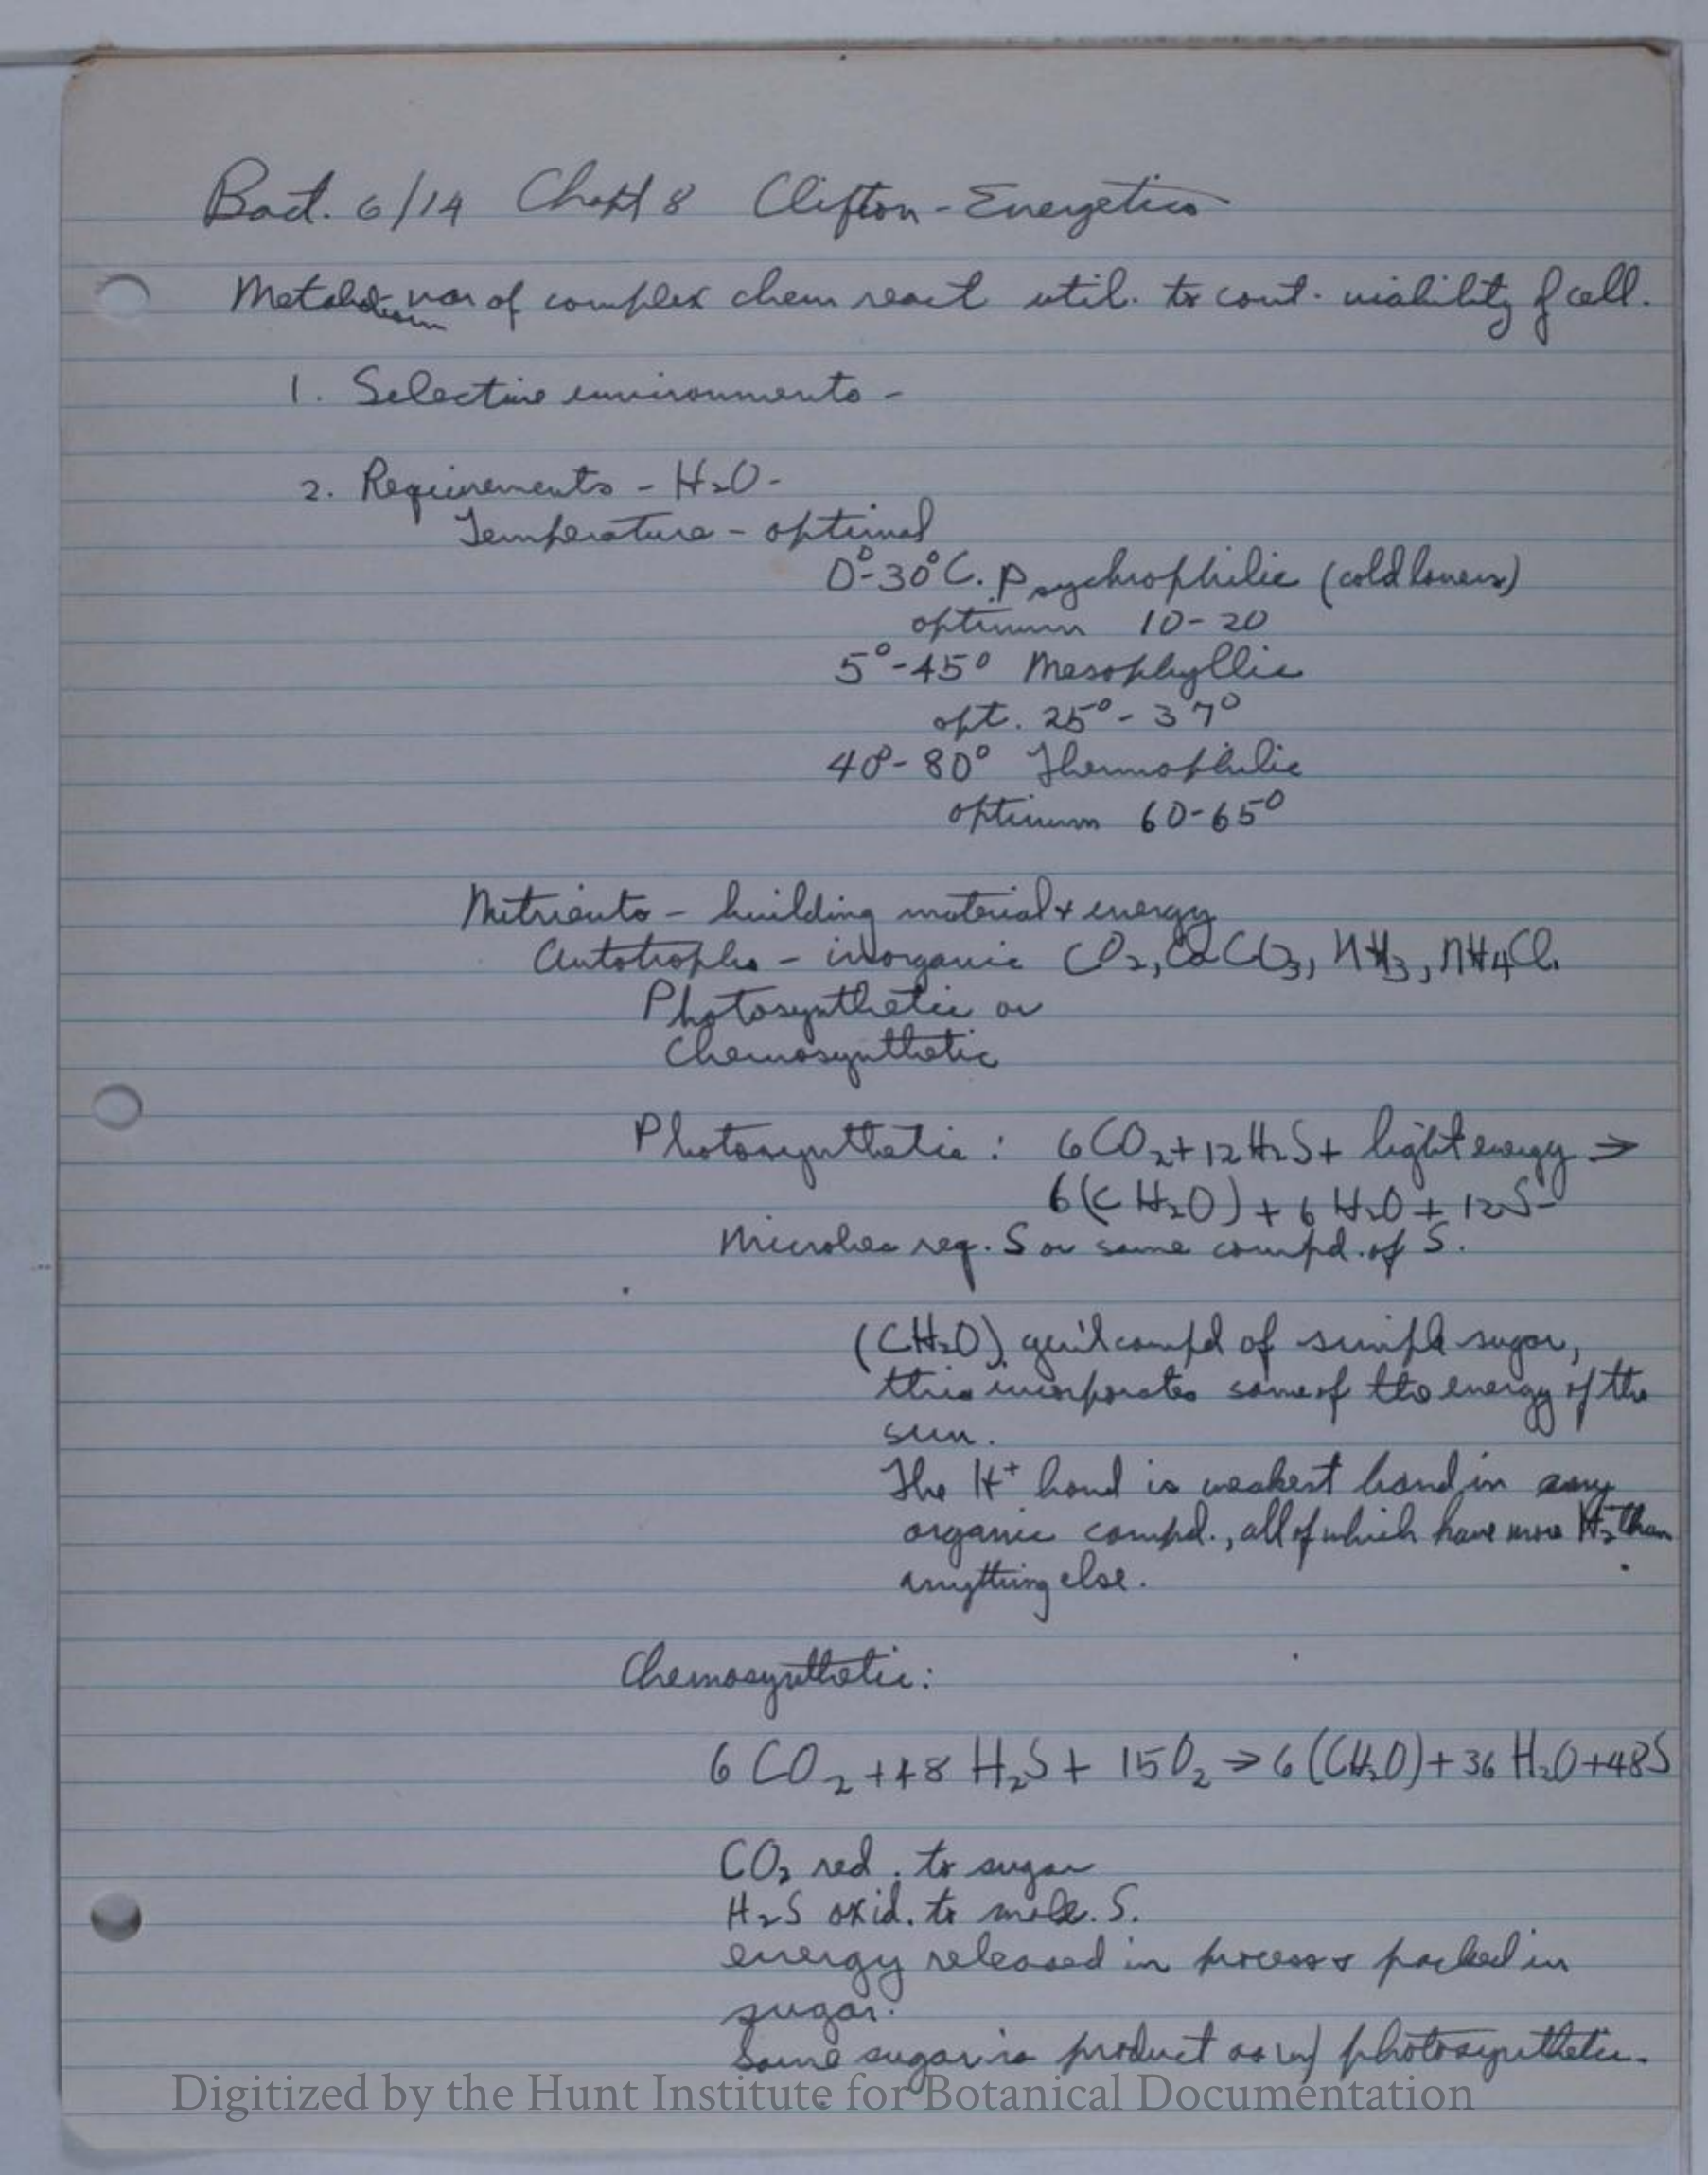 Bact. 6/14 Chapt 8 Clifton - Energetics
Metabolism var of complex chem react util. to cont. viability of cell.
1. Selective environments -
2. Requirements - H2O -
Temperature - optimal
0°-30°C. Psychrophilic (cold lovers)
optimum 10-20
5°-45° Mesophyllic
opt. 25°-37°
40-80° Thermophilic
optimum 60-65°
Nutrients - building material & energy
Autotrophs - inorganic CO2, CaCO3, NH3, NH4Cl.
Photosynthetic or
Chemosynthetic
Photosynthetic: 6CO2+12H2S+ light energy →
6(CH2O) + 6 H2O + 12S
Microbes req. S or some compd. of S.
(CH2O) gen'l compd of simple sugar,
this incorporates some of the energy of the
sun.
The H+ bond is weakest bond in any
organic compd., all of which have more H2 than
anything else.
Chemosynthetic:
6 CO2 + 48 H2S + 15O2 → 6 (CH2O) + 36 H2O + 48S
CO2 red. to sugar
H2S oxid. to mole. S.
energy released in process & packed in
sugar.
Same sugar is product as w/ photosynthetic.
Digitized by the Hunt Institute for Botanical Documentation